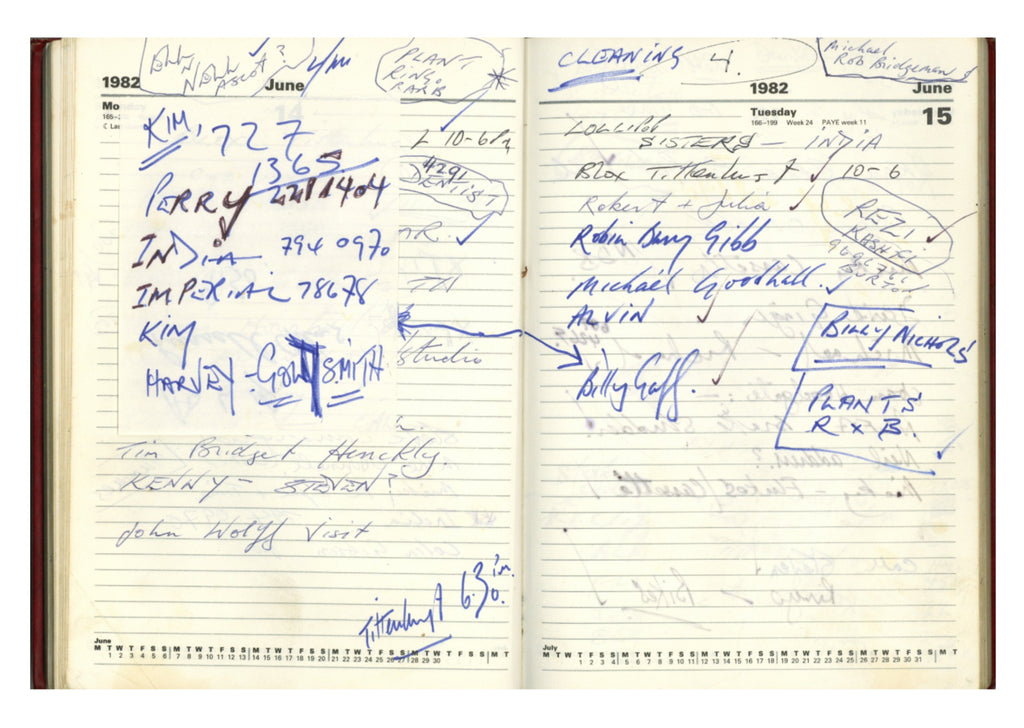 1982
June
NELL
ASCOT?
PLANT
RINGO
BARB
Mo
165-2
KIM, 727
1365
PERRY 221 1404
INDIA 794 0970
IMPERIAL 78678
KIM
HARVEY - GOLDSMITH
L 10-6Pm
4291
DENTIST
Studio
Tim Bridget Henckly.
KENNY - STEVEN?
John Wolff Visit
Tittenhurst 6.30.
June
M T W T F S S M T W T F S S M T W T F S S M T W T F S S M T W T F S S M T
1 2 3 4 5 6 7 8 9 10 11 12 13 14 15 16 17 18 19 20 21 22 23 24 25 26 27 28 29 30
CLEANING 4.
Michael
Rob Bridgeman
1982
June
Tuesday
166-199 Week 24 PAYE week 11
15
LOLLIPOP
SISTERS - INDIA
Blox Tittenhurst 10-6
Robert + Julia
REZI
KASHFI
BURTON
Robin Barry Gibb
Michael Goodhall.
ALVIN
BILLY NICHOLS
Billy Gaff.
PLANTS
R x B.
July
M T W T F S S M T W T F S S M T W T F S S M T W T F S S M T W T F S S M T
1 2 3 4 5 6 7 8 9 10 11 12 13 14 15 16 17 18 19 20 21 22 23 24 25 26 27 28 29 30 31